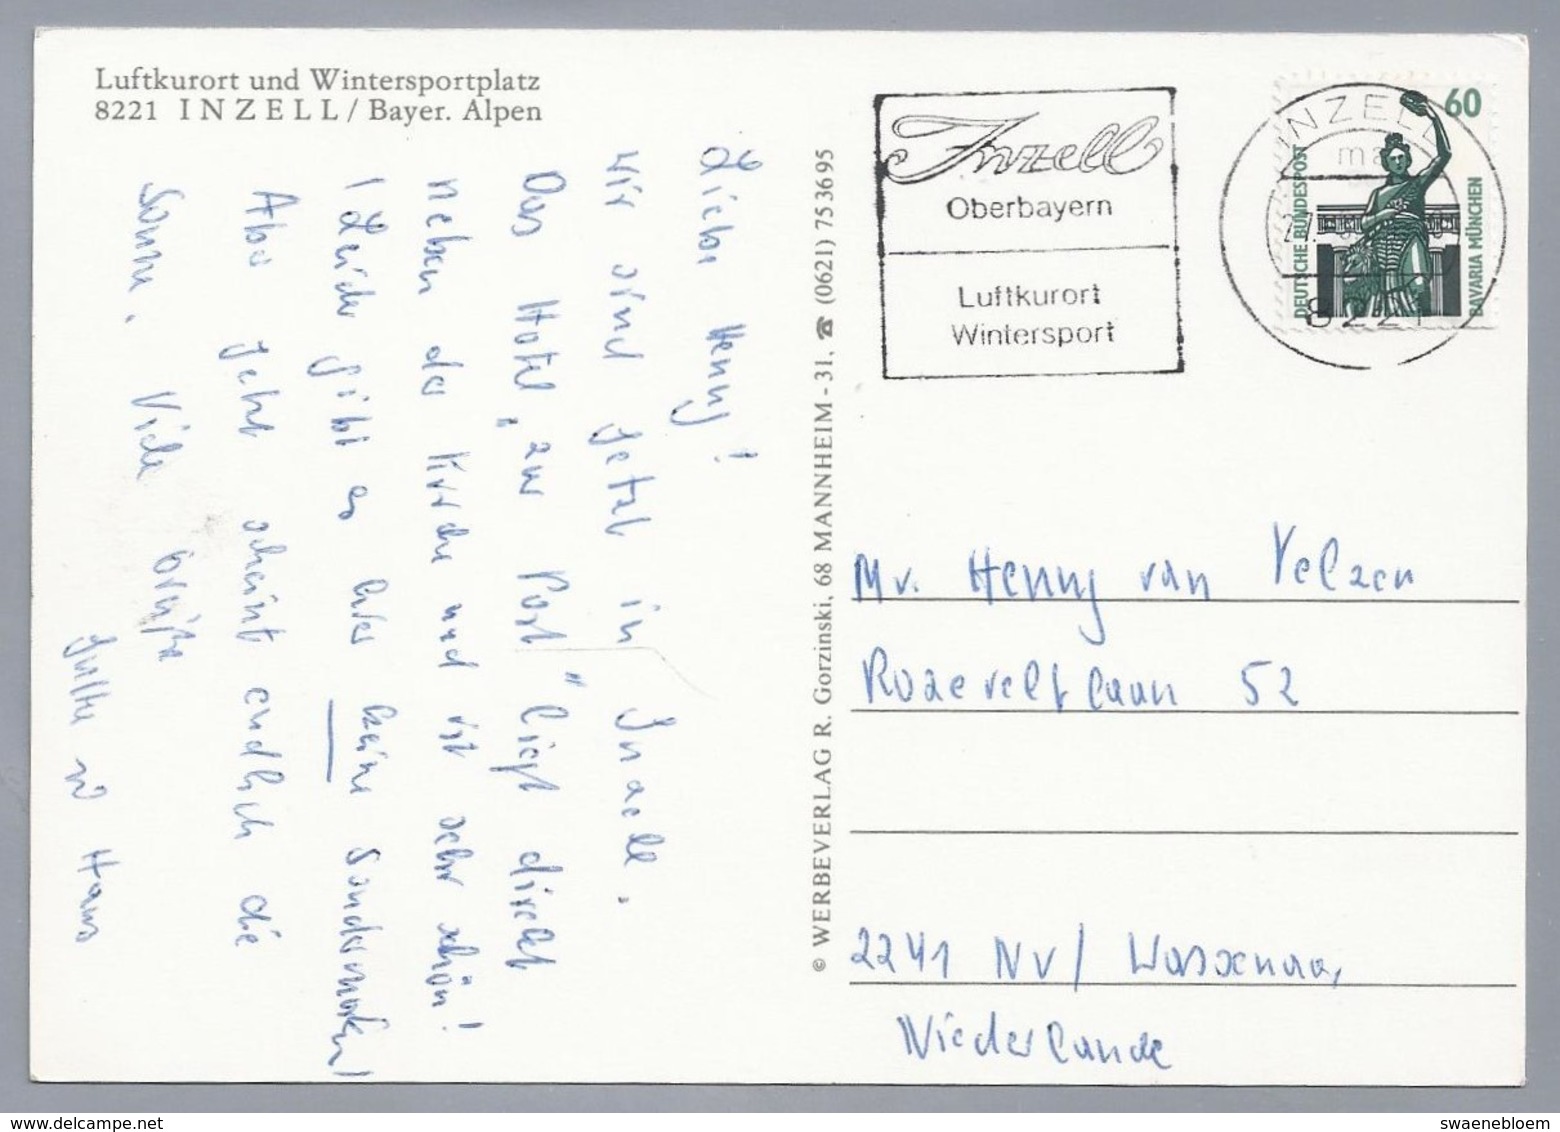 Luftkurort und Wintersportplatz
8221 INZELL / Bayer. Alpen
Lieber Henny!
Wir sind jetzt in Inzell.
Das Hotel „zur Post" liegt direkt
neben der Kirche und ist sehr schön!
Leider gibt es hier keine Sondermarken!
Aber jetzt scheint endlich die
Sonne. Viele Grüße
Hans
© WERBEVERLAG R. Gorzinski, 68 MANNHEIM - 31, ☎ (0621) 75 36 95
Inzell
Oberbayern
Luftkurort
Wintersport
INZELL
8221
60
DEUTSCHE BUNDESPOST
BAVARIA MÜNCHEN
Mr. Henny van Velzen
Rozeveltlaan 52
2241 NV / Wassenaar,
Niederlande
www.delcampe.net
swaenebloem